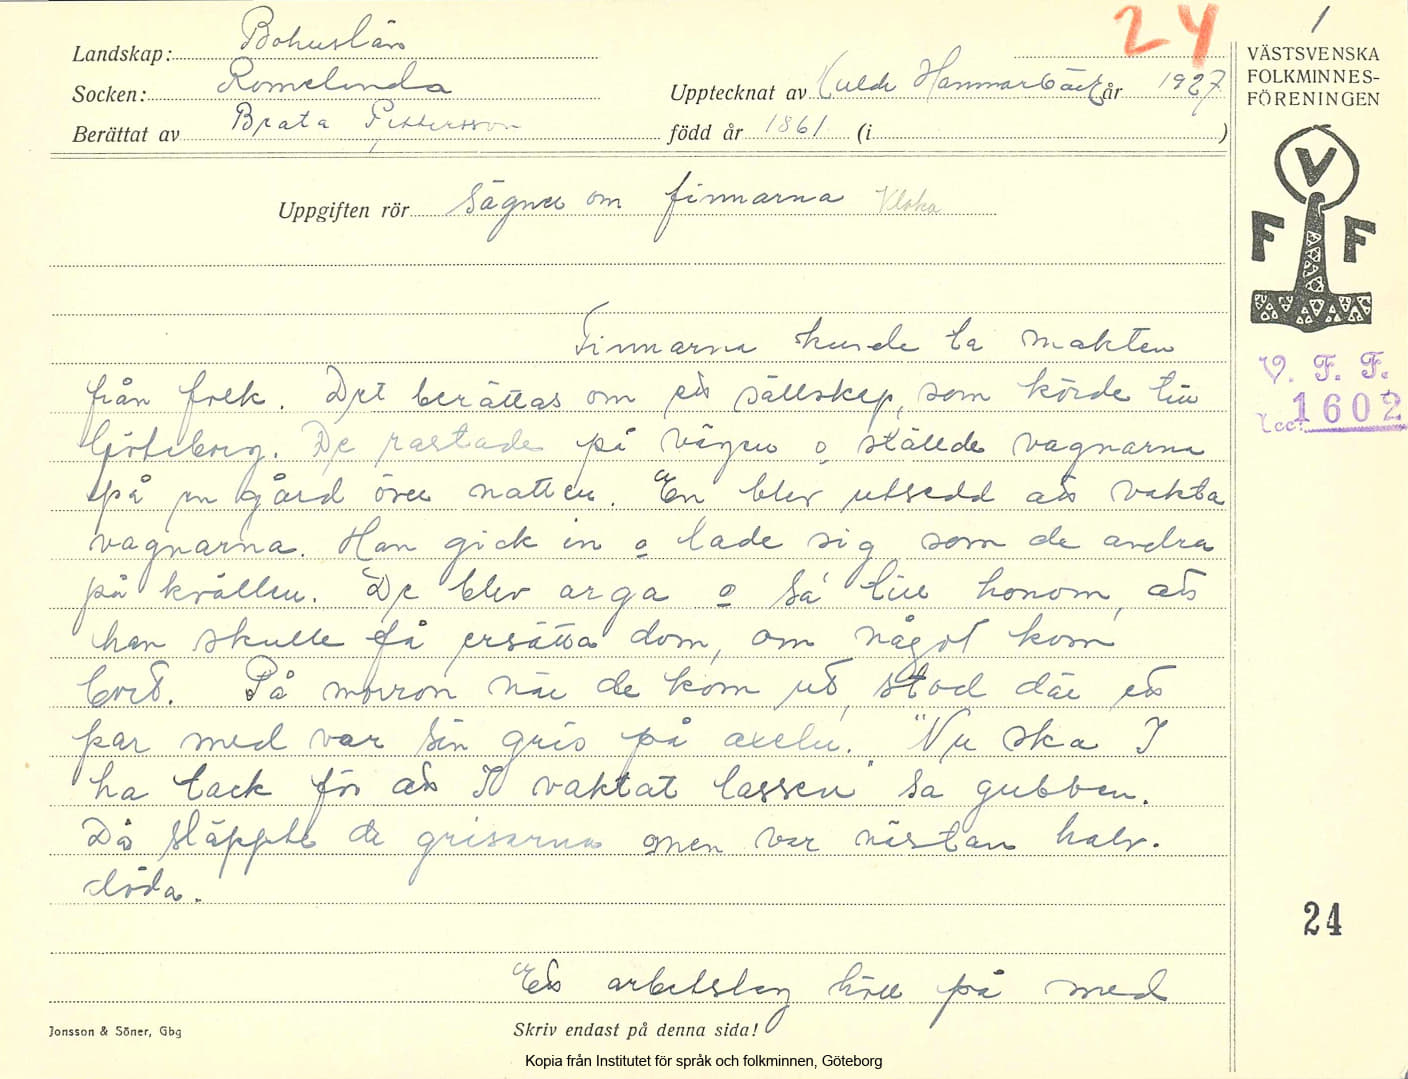 24
1
Landskap: Bohuslän
Socken: Romelanda
Upptecknat av Hulda Hammarbäck år 1927
Berättat av Beata Pettersson född år 1861 (i )
Uppgiften rör Sägner om finnarna Kloka
Finnarna kunde ta makten
från folk. Det berättas om ett sällskap, som körde till
Göteborg. De rastade på vägen o ställde vagnarna
på en gård över natten. En blev utsedd att vakta
vagnarna. Han gick in o lade sig som de andra
på kvällen. De blev arga o sa' till honom, att
han skulle få ersätta dom, om något kom
bort. På morron när de kom ut, stod där ett
par med var sin gris på axeln. "Nu ska I
ha tack för att I vaktat lassen" sa gubben.
Då släppte de grisarna men var nästan halv-
döda.
Ett arbetslag höll på med
VÄSTSVENSKA
FOLKMINNES-
FÖRENINGEN
V
F F
V. F. F.
acc. 1602
24
Jonsson & Söner, Gbg
Skriv endast på denna sida!
Kopia från Institutet för språk och folkminnen, Göteborg